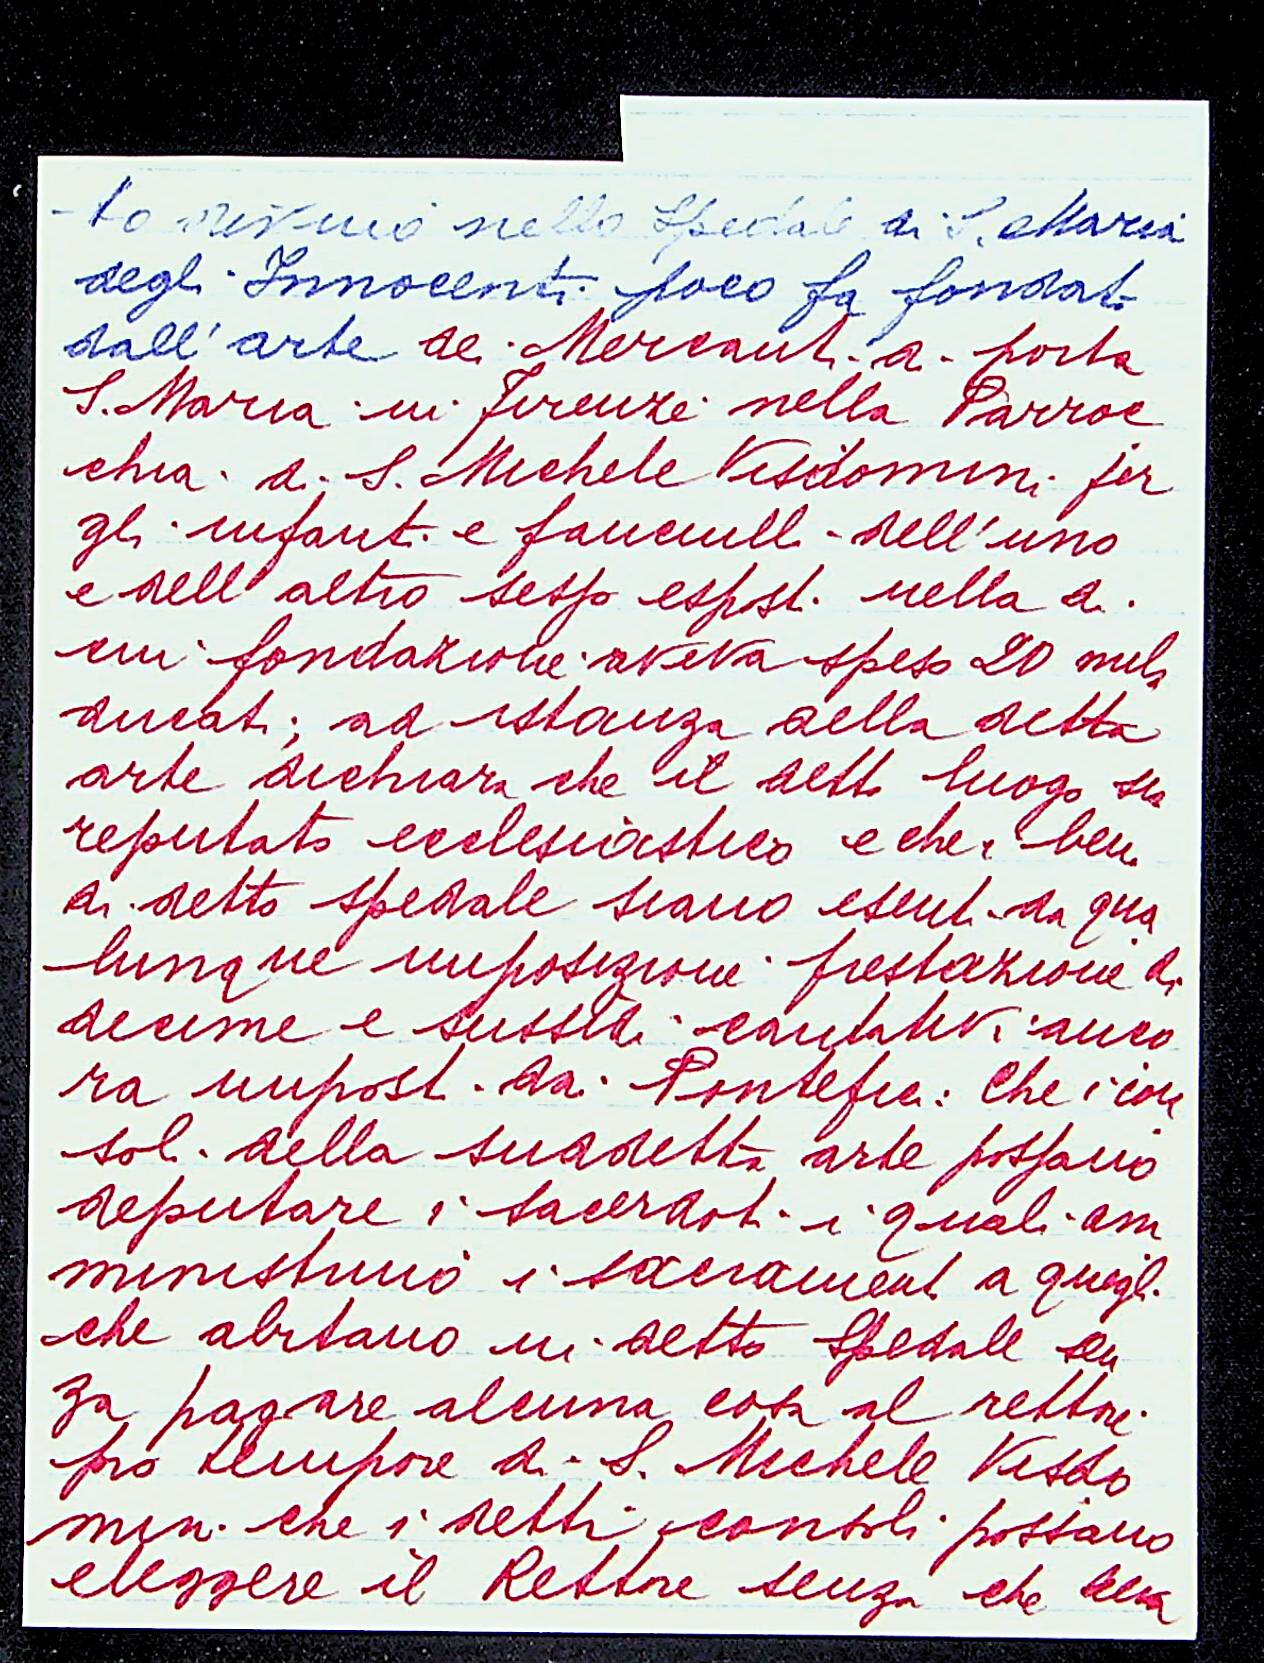 -to divino nello Spedale di S. Maria
degli Innocenti poco fa fondato
dall'arte dei Mercanti di porta
S. Maria in Firenze nella Parroc
chia di S. Michele Visdomini per
gli infanti e fanciulli dell'uno
e dell altro sesso esposti nella di
cui fondazione aveva speso 20 mila
ducati; ad istanza della detta
arte dichiara che il detto luogo sia
reputato ecclesiastico e che i beni
di detto spedale siano esenti da qua
lunque imposizione prestazione di
decime e sussidi caritativi anco
ra imposti dai Pontefici: Che i con
soli della suddetta arte possano
deputare i sacerdoti i quali am
ministrino i sacramenti a quegli
che abitano in detto Spedale sen
za pagare alcuna cosa al rettore
pro tempore di S. Michele Visdo
mini che i detti consoli possano
eleggere il Rettore senza che